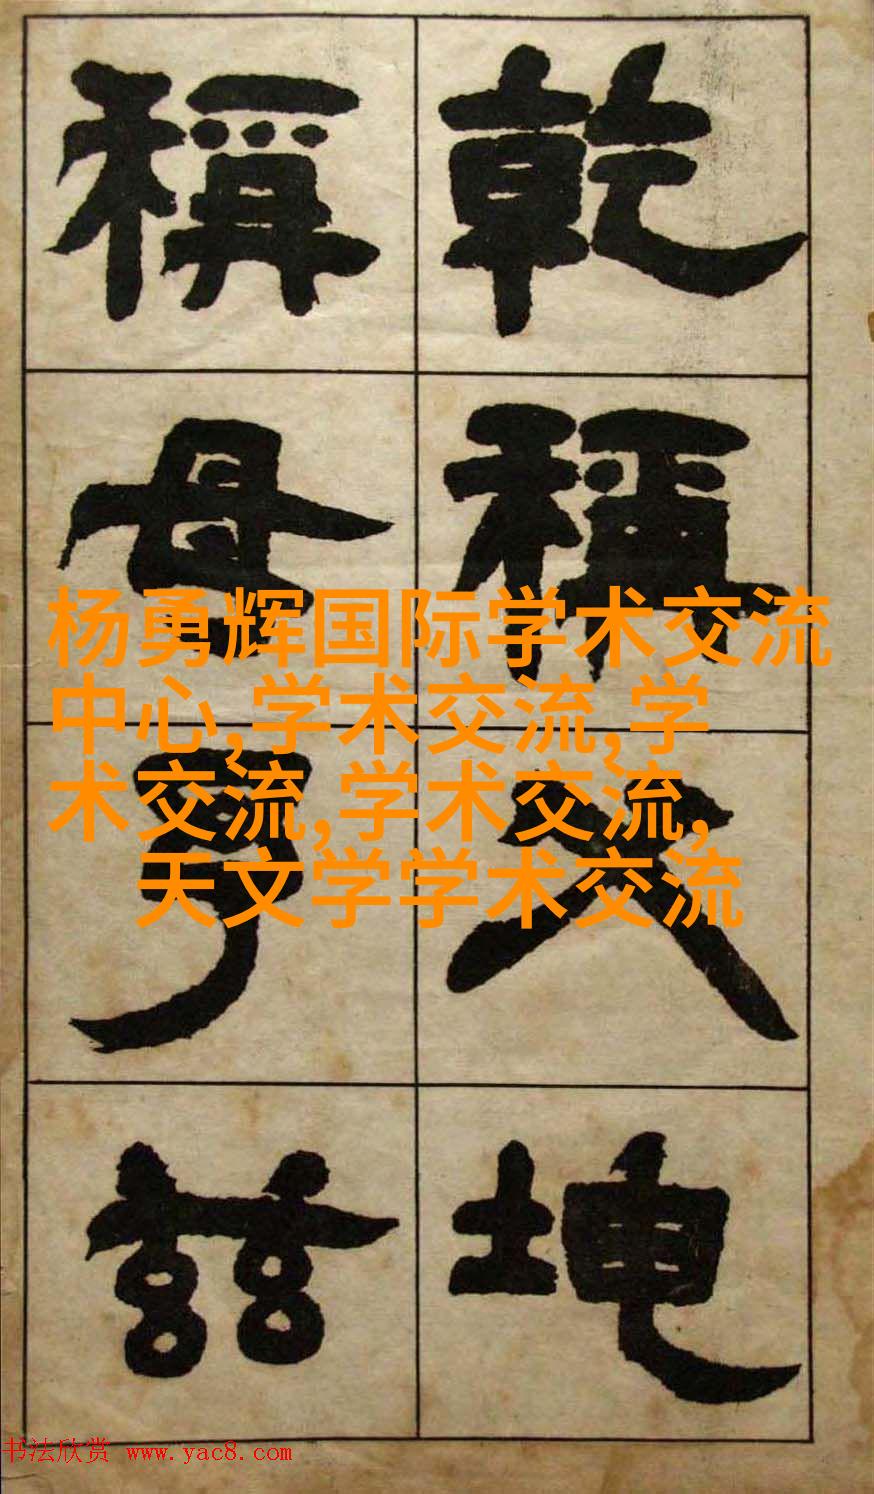 乾稱父坤
稱母予茲
杨勇辉国际学术交流
中心,学术交流,学
术交流,学术交流,
天文学学术交流
书法欣赏 www.yac8.com